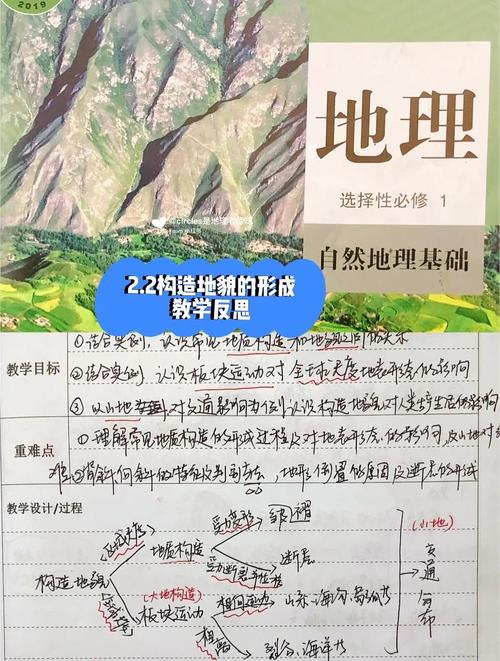 2019
地理
选择性必修 1
@circles是地理
自然地理基础
2.2构造地貌的形成
教学反思
①结合实例，认识常见地质构造和地貌之间的关系
教学目标
②结合实例，认识板块运动对全球尺度地表形态的影响
③以山地 对交通影响为例认识构造地貌对人类生产生活的影响
重难点
①理解常见地质构造的形成过程及对地表形态的影响，及山地对
难：②背斜向斜的特征及判别方法，地形倒置的原因及断层的形成
教学设计/过程
受力变形
褶皱
(山地)
地质构造
受力断裂
断层
构造地貌
(大地构造)
板块运动
相向运动
山脉、海沟、岛弧
裂谷、海洋
交通分布